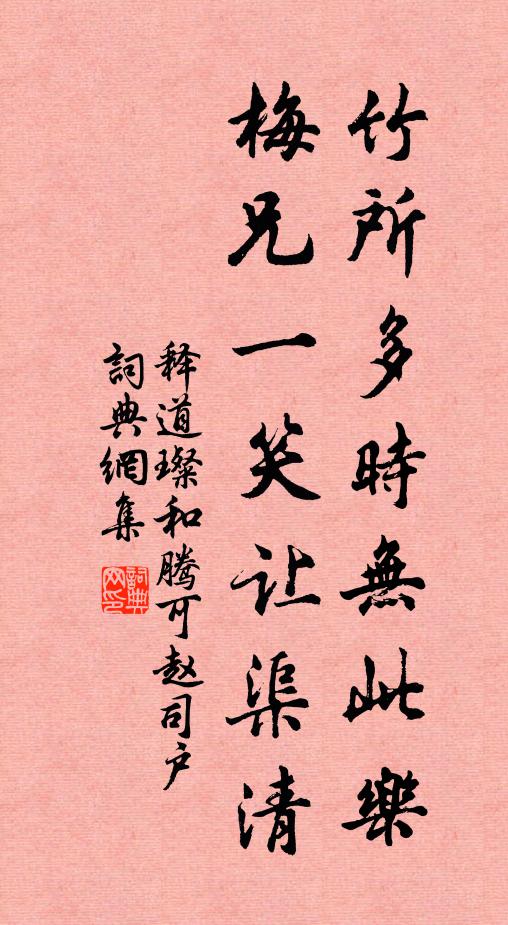 竹所多時無此樂
梅兄一笑让渠清
释道璨和腾可赵司户
詞典網集
詞典网印